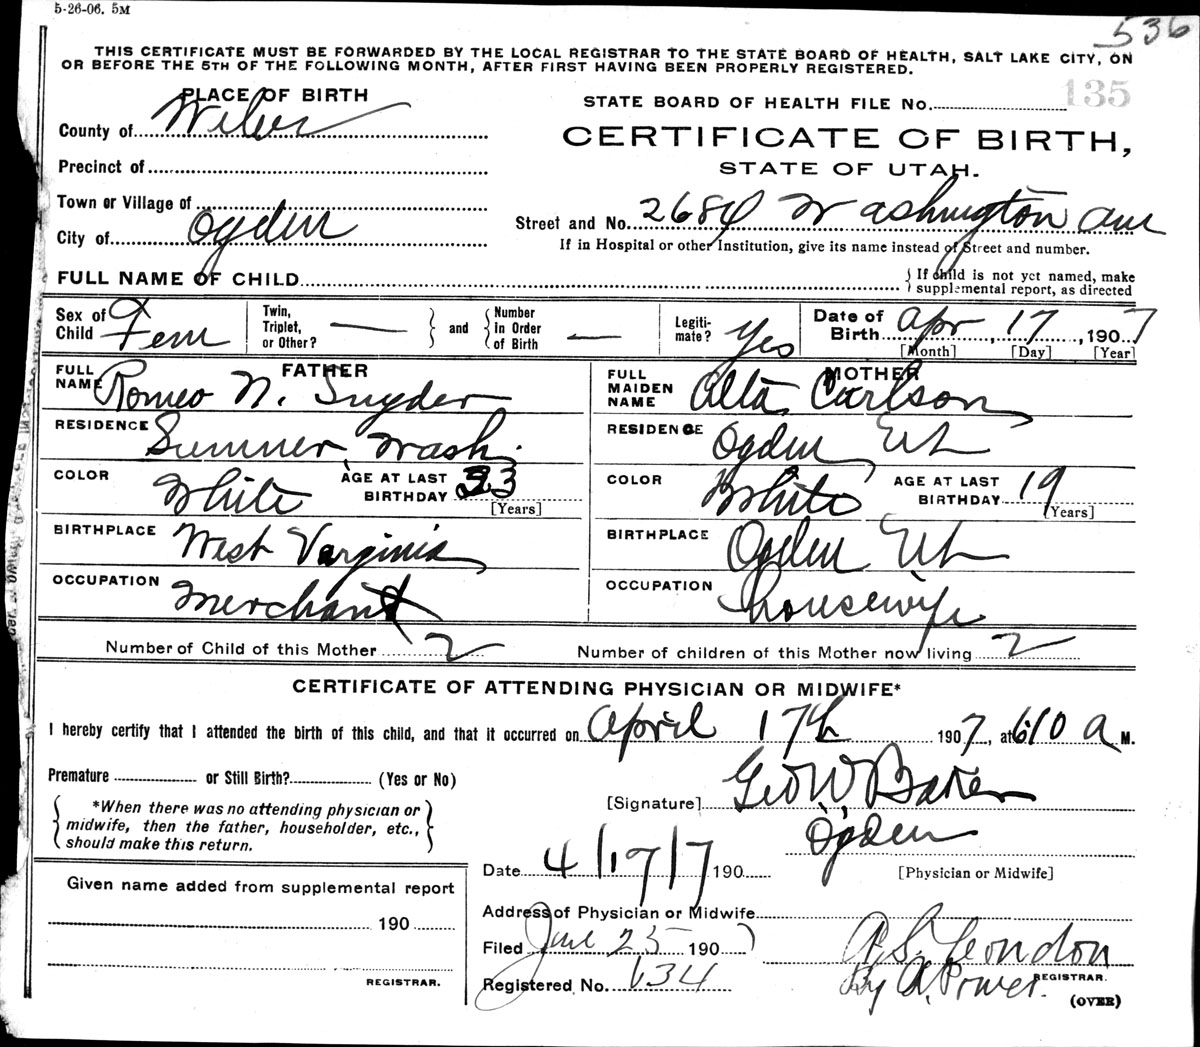 5-26-06. 5M
536
THIS CERTIFICATE MUST BE FORWARDED BY THE LOCAL REGISTRAR TO THE STATE BOARD OF HEALTH, SALT LAKE CITY, ON
OR BEFORE THE 5TH OF THE FOLLOWING MONTH, AFTER FIRST HAVING BEEN PROPERLY REGISTERED.
PLACE OF BIRTH
County of Weber
Precinct of
Town or Village of
City of Ogden
STATE BOARD OF HEALTH FILE No. 135
CERTIFICATE OF BIRTH,
STATE OF UTAH.
Street and No. 2684 Washington Ave
If in Hospital or other Institution, give its name instead of Street and number.
FULL NAME OF CHILD
{ If child is not yet named, make
supplemental report, as directed
Sex of Child Fem
Twin, Triplet, or Other? —
and
Number In Order of Birth —
Legiti-mate? Yes
Date of Birth Apr 17, 1907
[Month] [Day] [Year]
FATHER
FULL NAME Romeo N. Snyder
RESIDENCE Sumner, Wash.
COLOR White
AGE AT LAST BIRTHDAY 23
[Years]
BIRTHPLACE West Varginia
OCCUPATION Merchant
MOTHER
FULL MAIDEN NAME Alta Carlson
RESIDENCE Ogden Ut
COLOR White
AGE AT LAST BIRTHDAY 19
[Years]
BIRTHPLACE Ogden Ut
OCCUPATION Housewife
Number of Child of this Mother 2
Number of children of this Mother now living 2
CERTIFICATE OF ATTENDING PHYSICIAN OR MIDWIFE*
I hereby certify that I attended the birth of this child, and that it occurred on April 17th 1907, at 610 a M.
Premature or Still Birth? (Yes or No)
{ *When there was no attending physician or
midwife, then the father, householder, etc.,
should make this return. }
[Signature] Geo W. Baker
Ogden
[Physician or Midwife]
Date 4/17/7 190
Address of Physician or Midwife
Given name added from supplemental report
190
REGISTRAR.
Filed June 25 1907
Registered No. 634
A. S. Condon
By A. Power.
REGISTRAR.
(OVER)